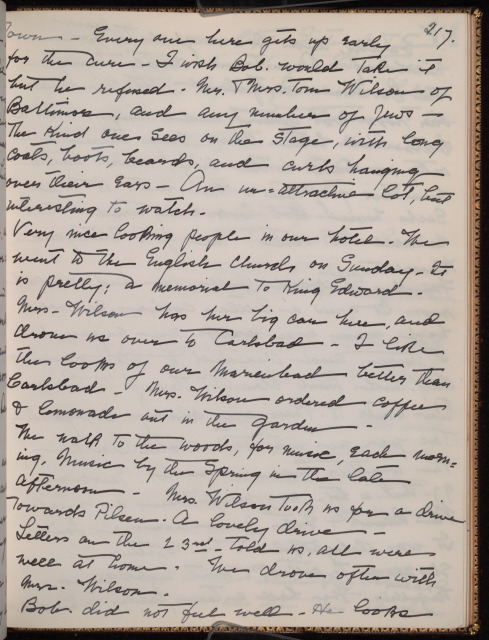 217.
Town - Every one here gets up early
for the cure - I wish Bob. would take it
but he refused. Mr. & Mrs. Tom Wilson of
Baltimore, and any number of Jews -
the kind one sees on the stage, with long
coats, boots, beards, and curls hanging
over their ears - An un=attractive lot, but
interesting to watch.
Very nice looking people in our hotel. We
went to the English Church on Sunday. It
is pretty; a memorial to King Edward.
Mrs. Wilson has her big car here, and
drove us over to Carlsbad - I like
the looks of our Marienbad better than
Carlsbad - Mrs. Wilson ordered coffee
& lemonade out in the garden -
We walk to the woods, for music, each morn=
ing. Music by the Spring in the late
afternoon - Mrs. Wilson took us for a drive
towards Pilsen. A lovely drive -
Letters on the 23rd told us, all were
well at home. We drove often with
Mrs. Wilson.
Bob did not feel well - He looks